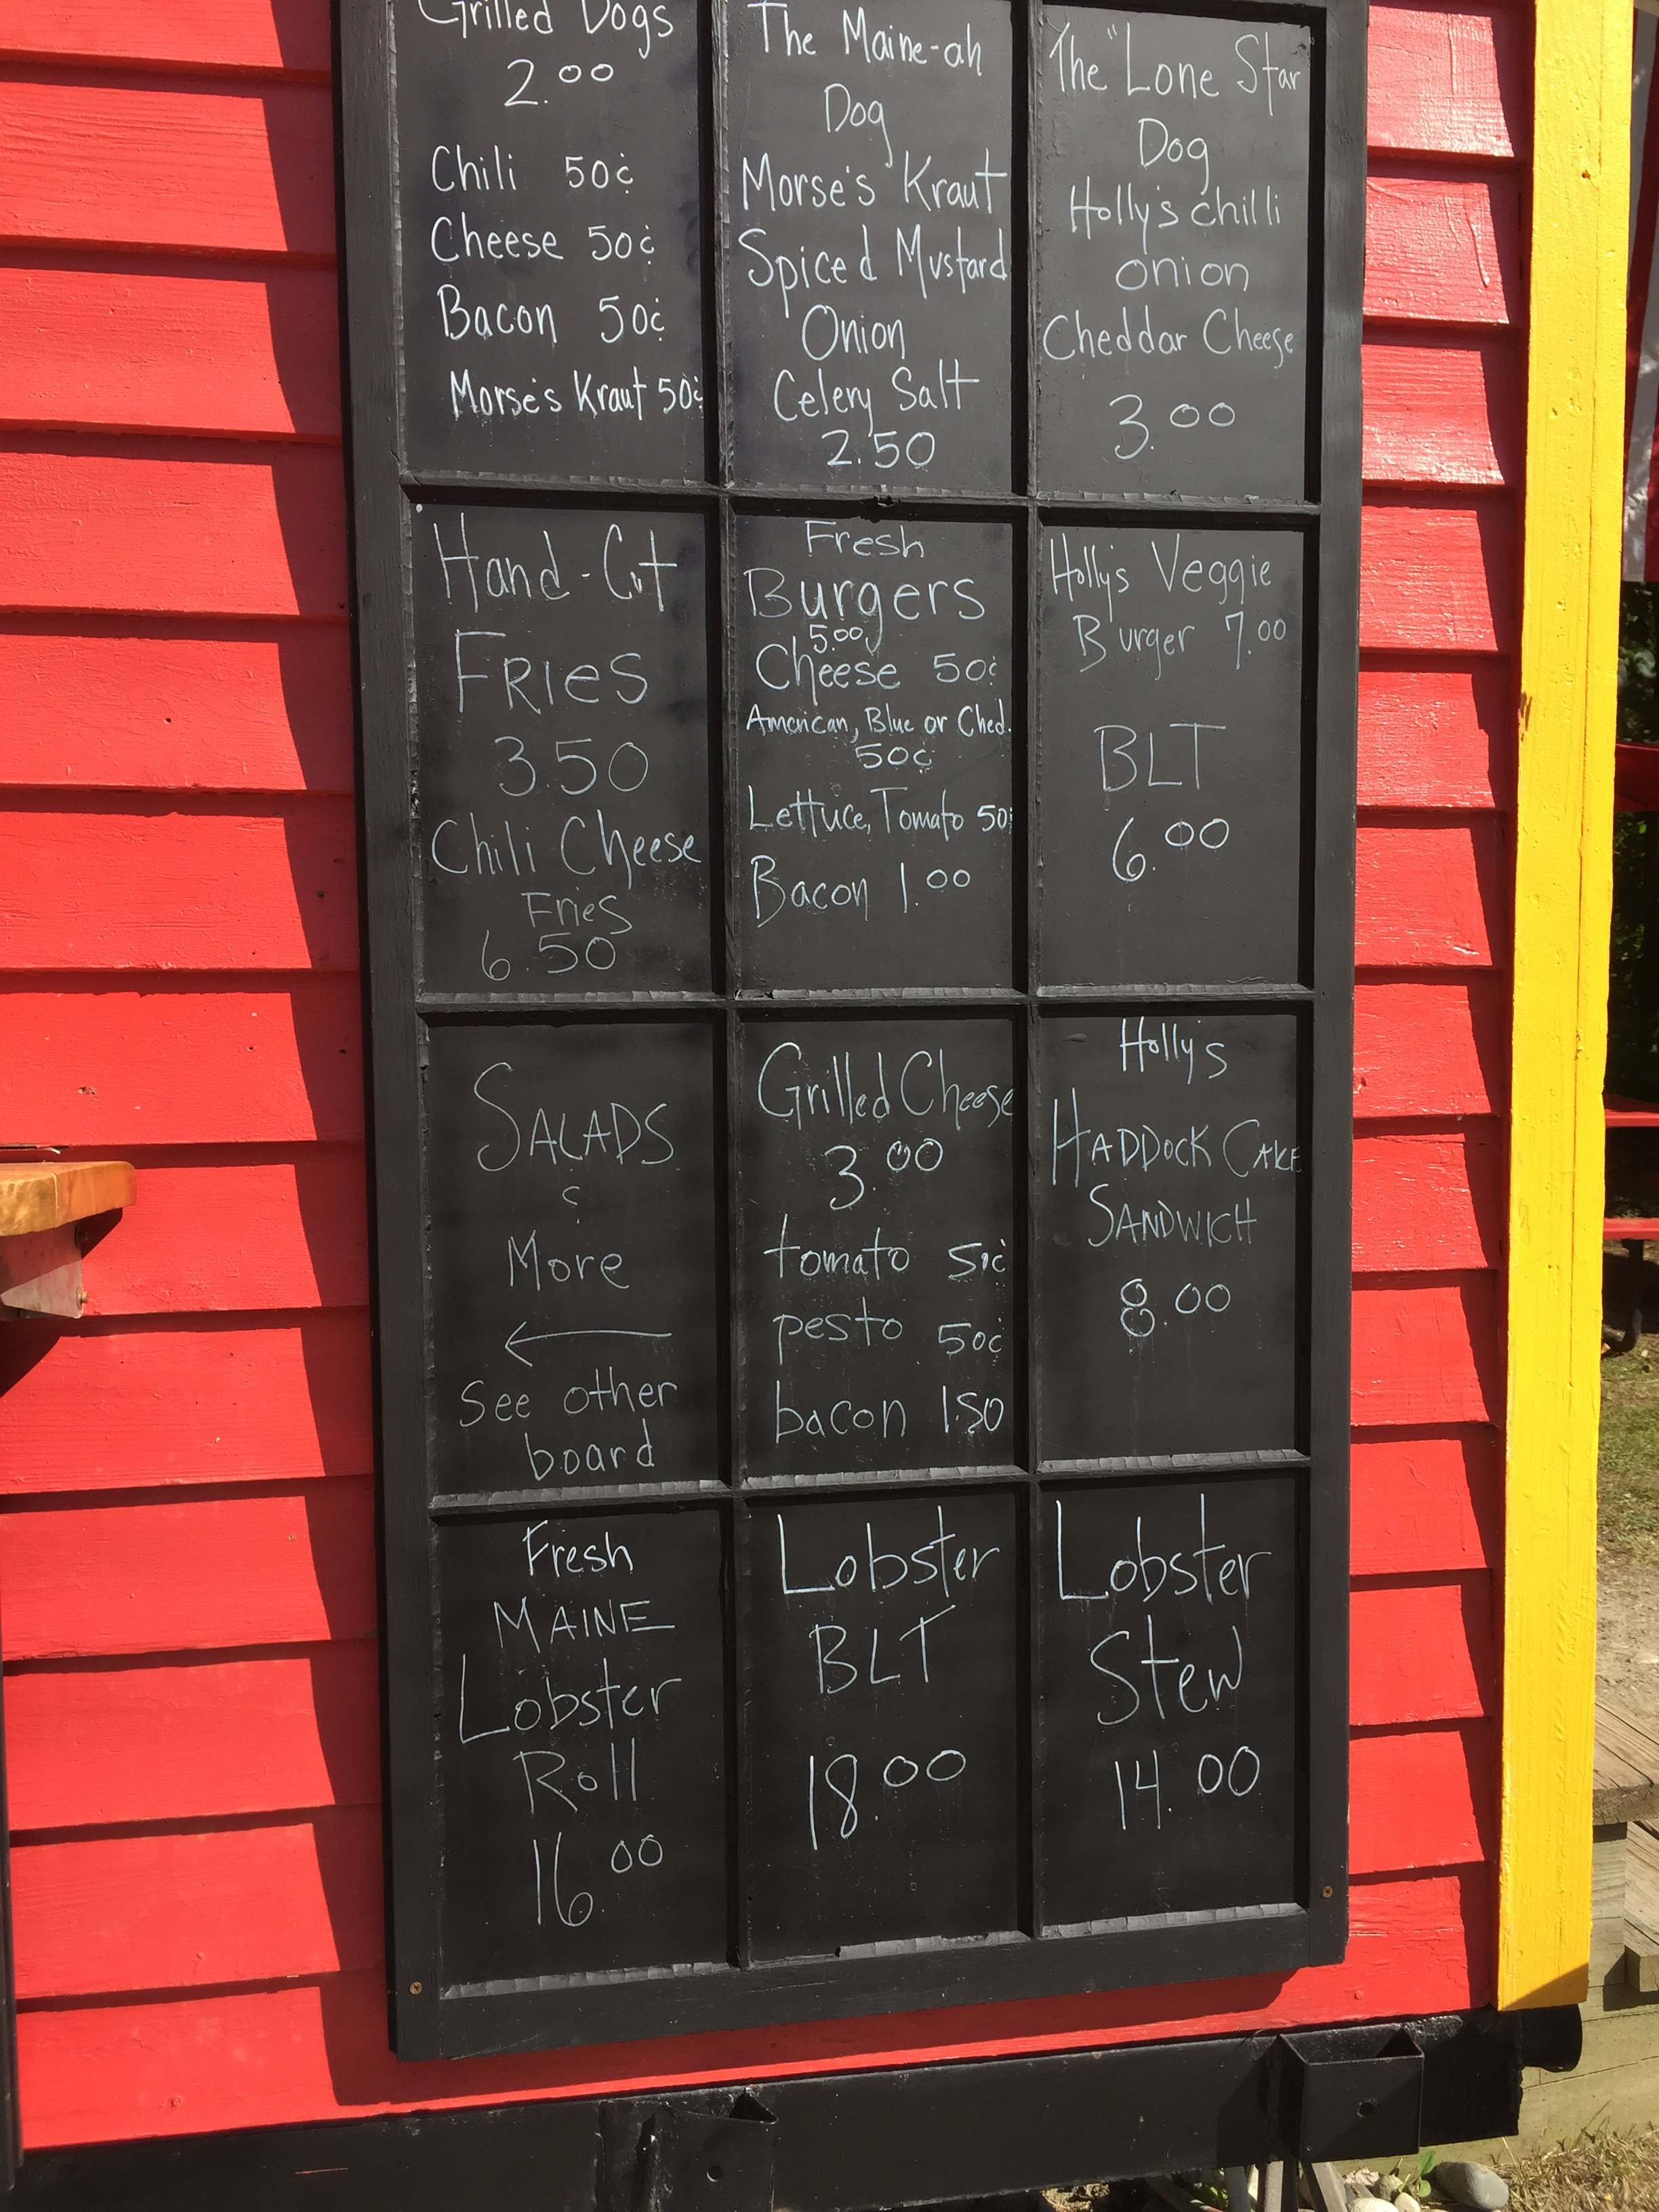 Grilled Dogs
2.00
Chili 50¢
Cheese 50¢
Bacon 50¢
Morse's Kraut 50¢
The Maine-ah
Dog
Morse's Kraut
Spiced Mustard
Onion
Celery Salt
2.50
The "Lone Star"
Dog
Holly's chilli
onion
Cheddar Cheese
3.00
Hand-Cut
FRIES
3.50
Chili Cheese
Fries
6.50
Fresh
Burgers
5.00
Cheese 50¢
American, Blue or Ched.
50¢
Lettuce, Tomato 50¢
Bacon 1.00
Holly's Veggie
Burger 7.00
BLT
6.00
SALADS
&
More
←
See other
board
Grilled Cheese
3.00
tomato 50¢
pesto 50¢
bacon 1.50
Holly's
HADDOCK CAKE
SANDWICH
8.00
Fresh
MAINE
Lobster
Roll
16.00
Lobster
BLT
18.00
Lobster
Stew
14.00